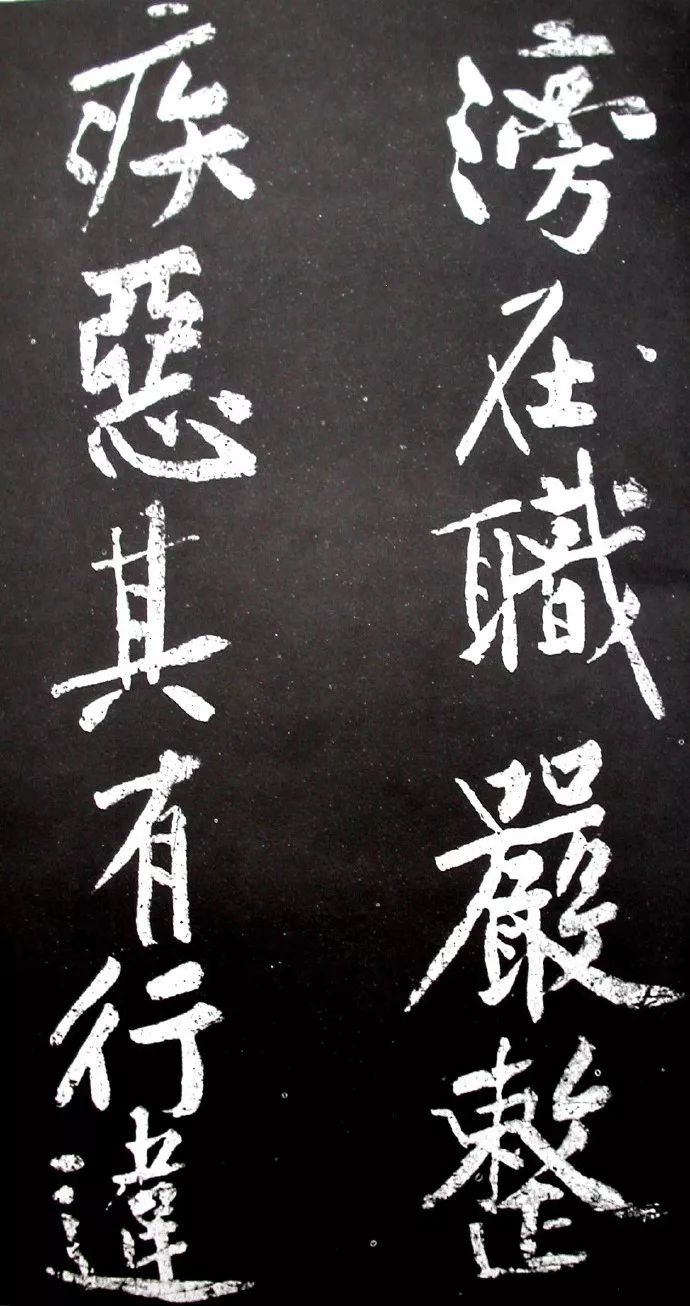 滂在職嚴整
疾惡其有行違